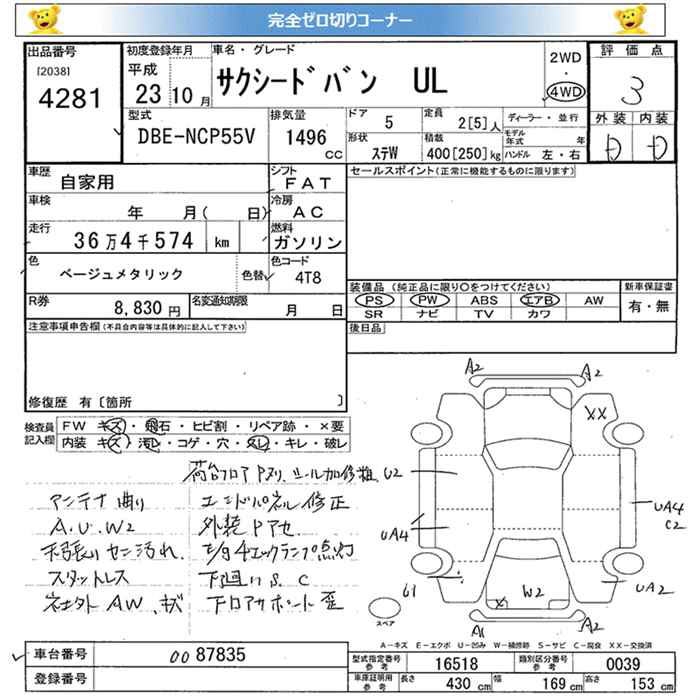 完全ゼロ切りコーナー
出品番号
[2038]
4281
初度登録年月
平成
23 10 月
車名・グレード
サクシードバン UL
2WD
・
4WD
評価点
3
外装 内装
D D
型式
DBE-NCP55V
排気量
1496
cc
ドア
5
定員
2[5]人
ディーラー・並行
形状
ステW
積載
400[250]kg
モデル年式 年
ハンドル 左・右
車歴
自家用
シフト
FAT
車検
年 月( 日)
冷房
AC
走行
36万4千574 km
燃料
ガソリン
色
ベージュメタリック
色替
色コード
4T8
R券
8,830円
名変通知期限
月 日
セールスポイント(正常に機能するものに限ります)
装備品(純正品に限り○をつけてください)
PS PW ABS エアB AW
SR ナビ TV カワ
新車保証書
有・無
後日品
注意事項申告欄(不具合内容等は具体的に記入して下さい)
修復歴 有〔箇所 〕
検査員
記入欄
FW キズ・飛石・ヒビ割・リペア跡・×要
内装 キズ・汚れ・コゲ・穴・スレ・キレ・破レ
荷台フロアPヌリ、シール加修粗
アンテナ曲り エンドパネル修正
A.U.W2 外装Pアセ
天張り汚れ エンジンチェックランプ点灯
スタットレス 下廻りS.C
社外AW、キズ 下回アサポート歪
A2
A2
XX
U2
UA4
UA4
C2
U1
W2
UA2
A1
A2
スペア
A−キズ E−エクボ U−凹み W−補修跡 S−サビ C−腐食 XX−交換済
車台番号
00 87835
登録番号
型式指定番号
参考
16518
類別区分番号
参考
0039
車庫証明用
参考
長さ
430 cm
幅
169 cm
高さ
153 cm